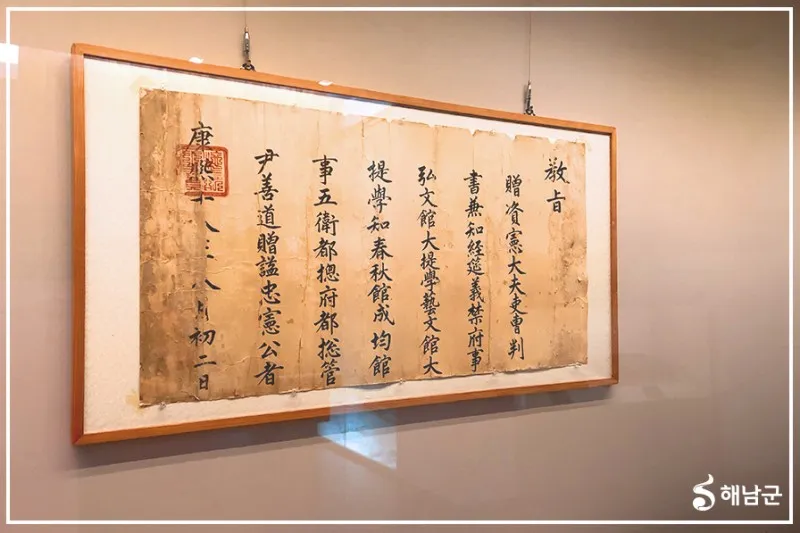 敎旨
贈資憲大夫吏曹判
書兼知經筵義禁府事
弘文館大提學藝文館大
提學知春秋館成均館
事五衛都摠府都捴管
尹善道贈諡忠憲公者
康熙十八年八月初二日
해남군